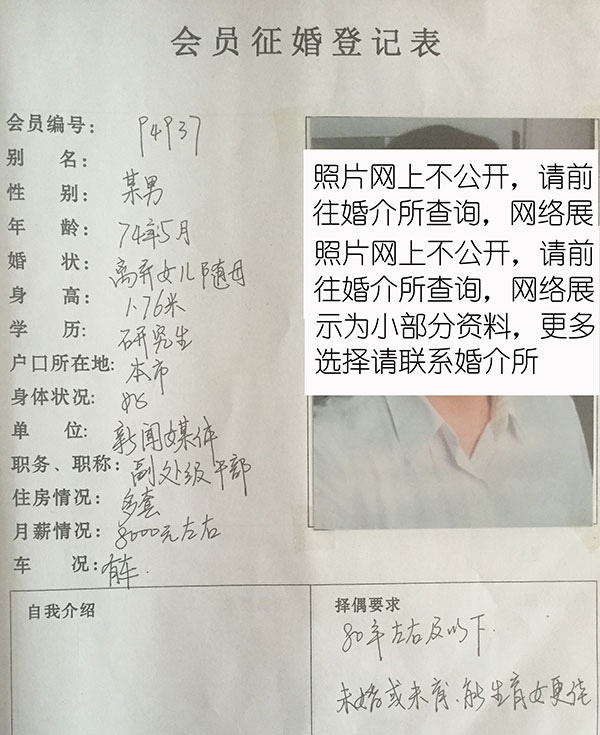 会员征婚登记表
会员编号: 94937
别 名:
性 别: 某男
年 龄: 74年5月
婚 状: 离异女儿随母
身 高: 1.76米
学 历: 研究生
户口所在地: 本市
身体状况: 好
单 位: 新闻媒体
职务、职称: 副处级干部
住房情况: 多套
月薪情况: 8000元左右
车 况: 有车.
照片网上不公开，请前
往婚介所查询，网络展
照片网上不公开，请前
往婚介所查询，网络展
示为小部分资料，更多
选择请联系婚介所
自我介绍
择偶要求
80年左右及以下.
未婚或未育、能生育女更佳